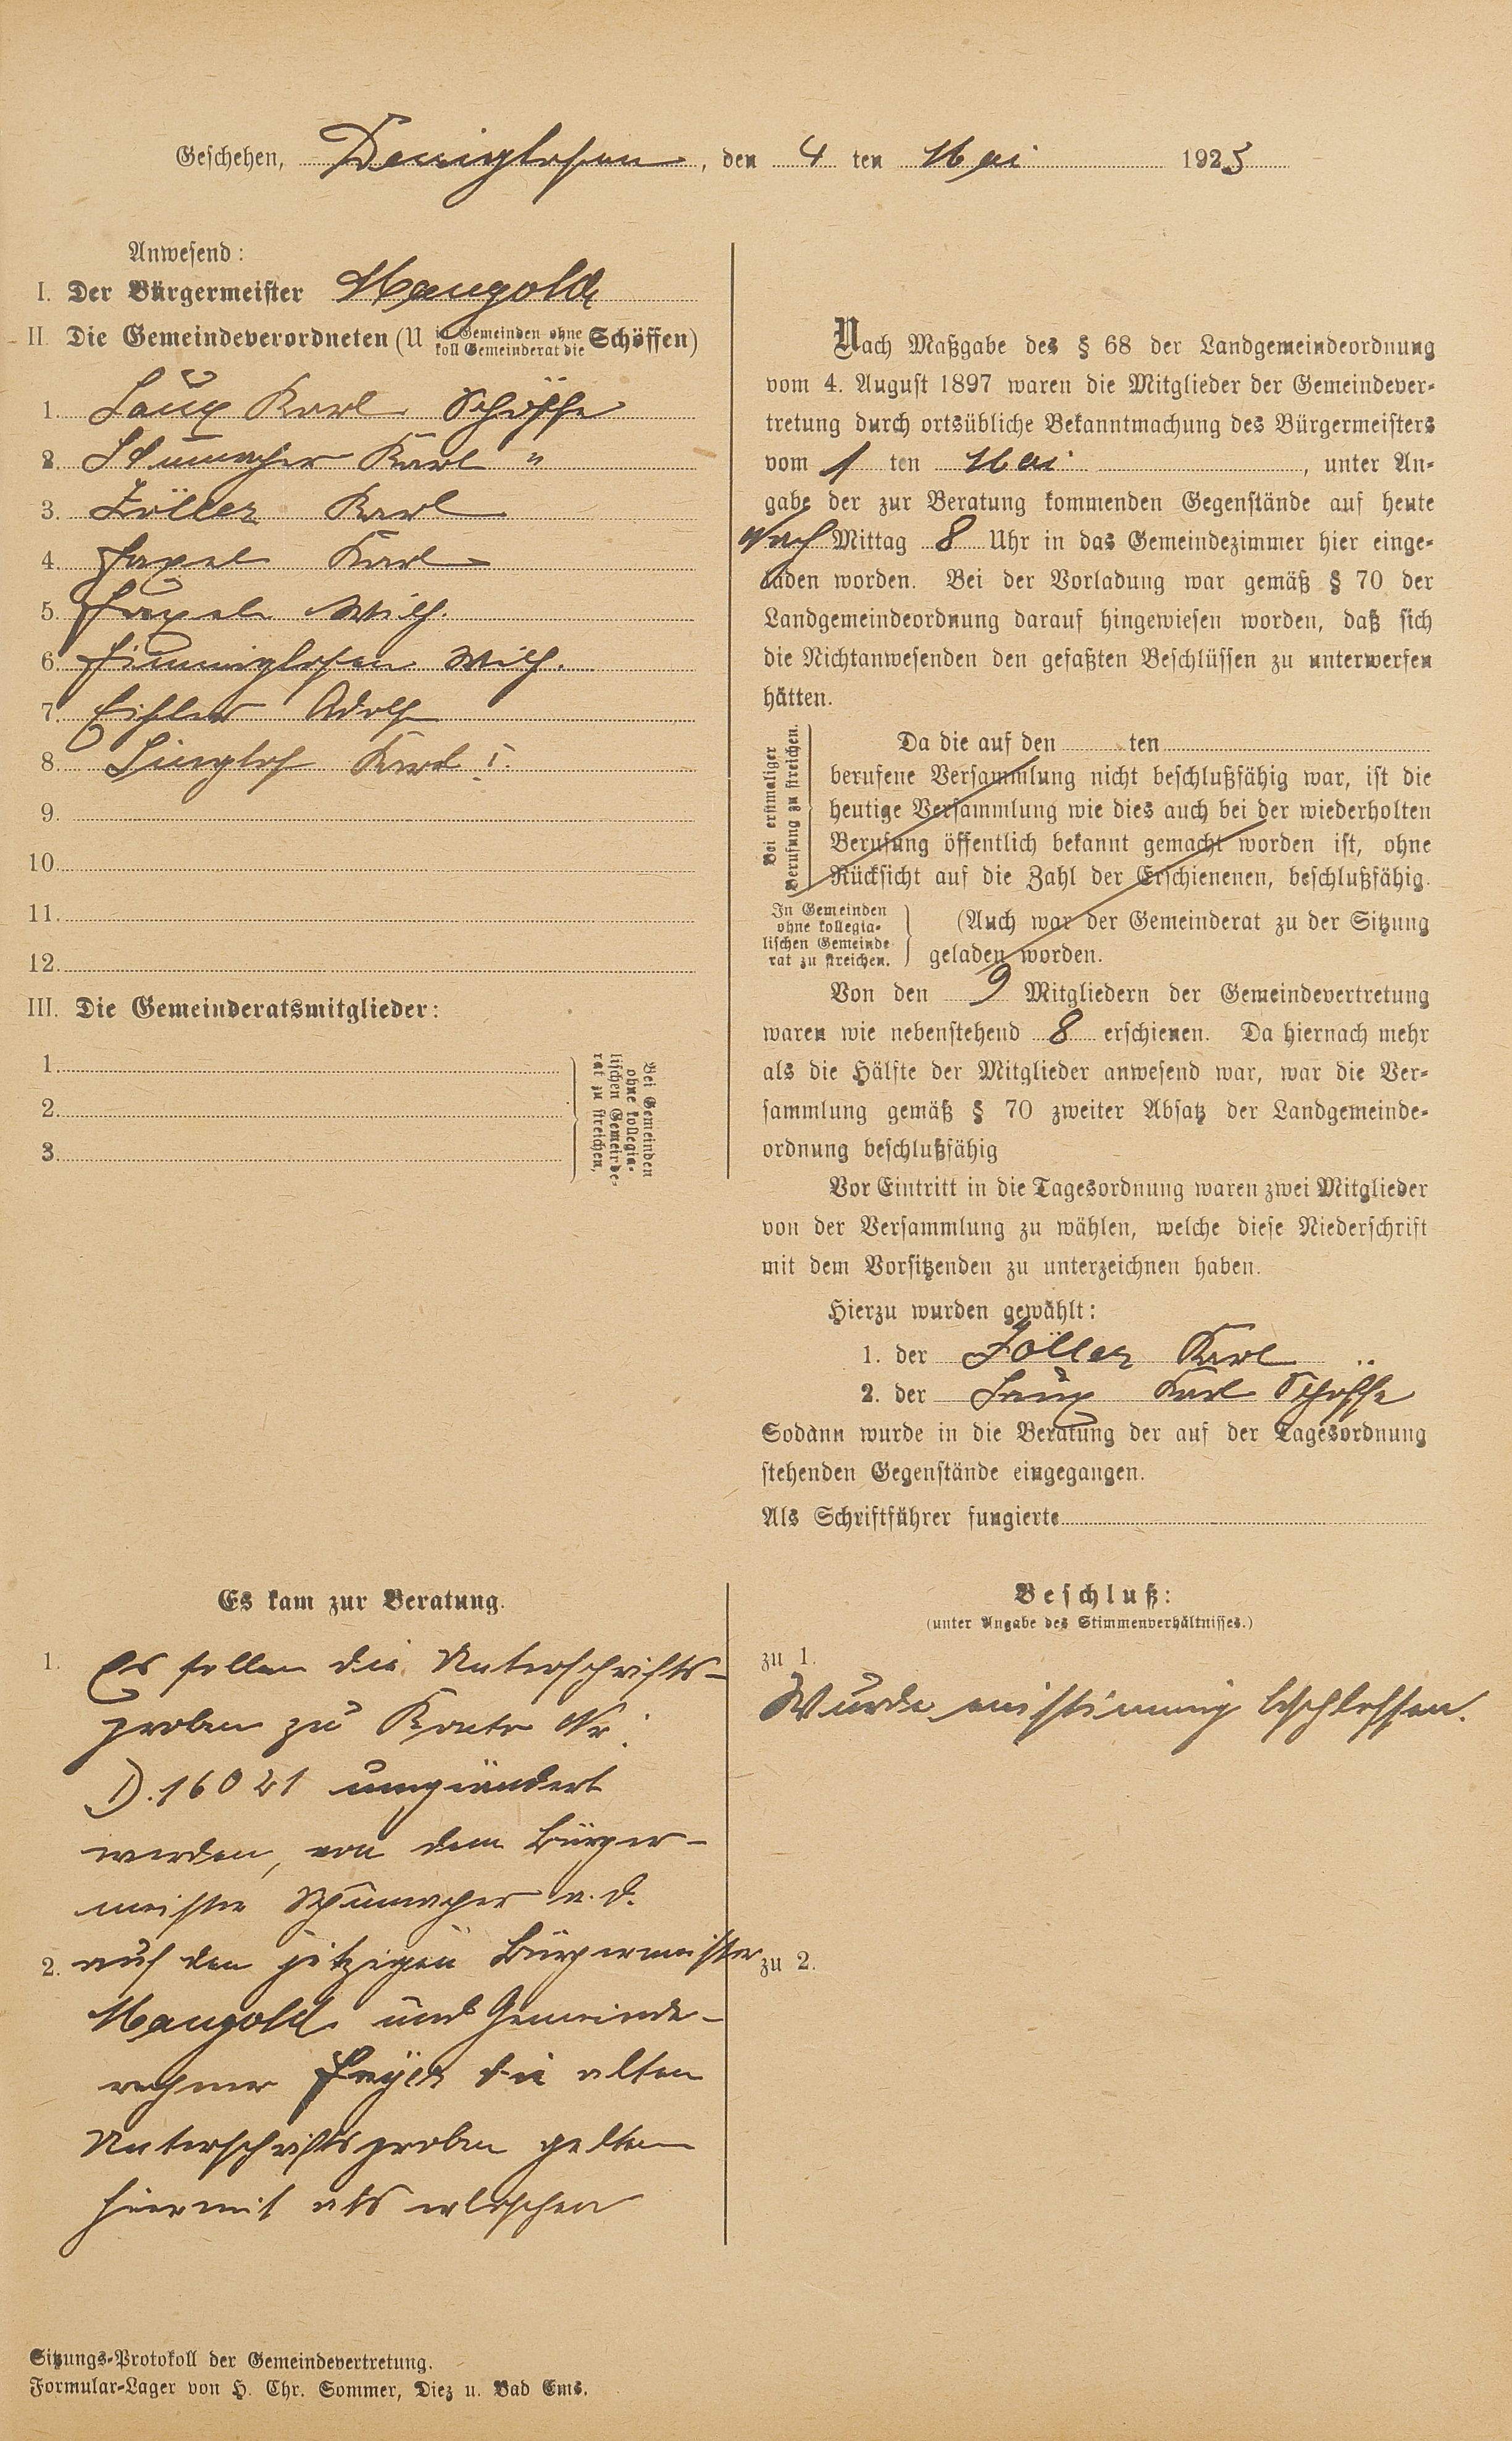 Geschehen, Denighofen, den 4 ten Mai 1925
Anwesend:
I. Der Bürgermeister Mangold
II. Die Gemeindeverordneten (U in Gemeinden ohne koll Gemeinderat die Schöffen)
1. Laux Karl Schöffe
2. Schumacher Karl "
3. Zöller Karl
4. Karl
5. Wilh.
6. Wilh.
7. Adolf
8. Singhof Karl I.
9.
10.
11.
12.
III. Die Gemeinderatsmitglieder:
1.
2.
3.
Bei Gemeinden
ohne kollegia-
lischen Gemeinde-
rat zu streichen.
Nach Maßgabe des § 68 der Landgemeindeordnung
vom 4. August 1897 waren die Mitglieder der Gemeindever-
tretung durch ortsübliche Bekanntmachung des Bürgermeisters
vom 1 ten Mai, unter An-
gabe der zur Beratung kommenden Gegenstände auf heute
Nach Mittag 8 Uhr in das Gemeindezimmer hier einge-
laden worden. Bei der Vorladung war gemäß § 70 der
Landgemeindeordnung darauf hingewiesen worden, daß sich
die Nichtanwesenden den gefaßten Beschlüssen zu unterwerfen
hätten.
Bei erstmaliger
Berufung zu streichen.
Da die auf den ten
berufene Versammlung nicht beschlußfähig war, ist die
heutige Versammlung wie dies auch bei der wiederholten
Berufung öffentlich bekannt gemacht worden ist, ohne
Rücksicht auf die Zahl der Erschienenen, beschlußfähig.
In Gemeinden
ohne kollegia-
lischen Gemeinde
rat zu streichen.
(Auch war der Gemeinderat zu der Sitzung
geladen worden.
Von den 9 Mitgliedern der Gemeindevertretung
waren wie nebenstehend 8 erschienen. Da hiernach mehr
als die Hälfte der Mitglieder anwesend war, war die Ver-
sammlung gemäß § 70 zweiter Absatz der Landgemeinde-
ordnung beschlußfähig
Vor Eintritt in die Tagesordnung waren zwei Mitglieder
von der Versammlung zu wählen, welche diese Niederschrift
mit dem Vorsitzenden zu unterzeichnen haben.
Hierzu wurden gewählt:
1. der Zöller Karl
2. der Laux Karl Schöffe
Sodann wurde in die Beratung der auf der Tagesordnung
stehenden Gegenstände eingegangen.
Als Schriftführer fungierte
Es kam zur Beratung.
1. Es sollen die Unterschrifts-
proben zu Konto Nr.
D. 16021 umgeändert
werden, von dem Bürger-
meister Schumacher a. D.
2. auf den jetzigen Bürgermeister
Mangold und Gemeinde-
rechner die alten
Unterschriftsproben gelten
hiermit als erloschen
Beschluß:
(unter Angabe des Stimmenverhältnisses.)
zu 1.
Wurde einstimmig beschlossen.
zu 2.
Sitzungs-Protokoll der Gemeindevertretung.
Formular-Lager von H. Chr. Sommer, Diez u. Bad Ems.